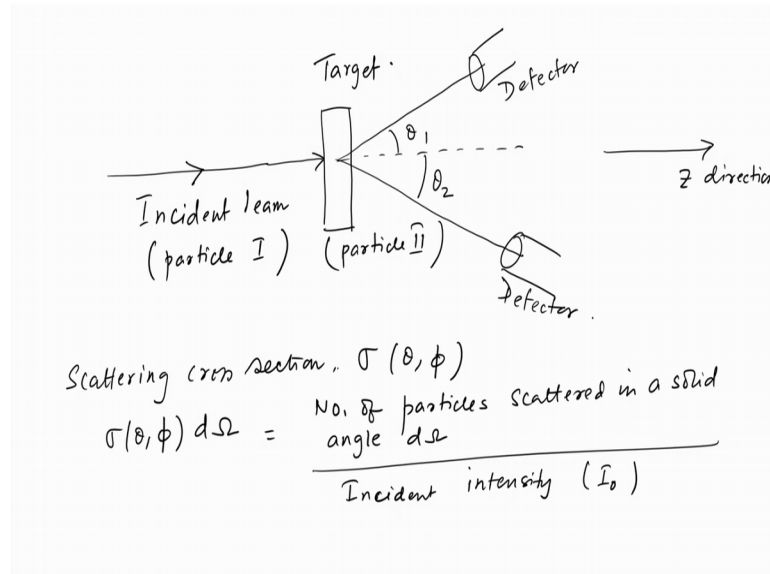 Target.
Detector
θ1
θ2
Z direction
Incident beam
(particle I)
(particle II)
Detector.
Scattering cross section. σ (θ, φ)
σ(θ, φ) dΩ =
No. of particles scattered in a solid
angle dΩ
Incident intensity (I₀)